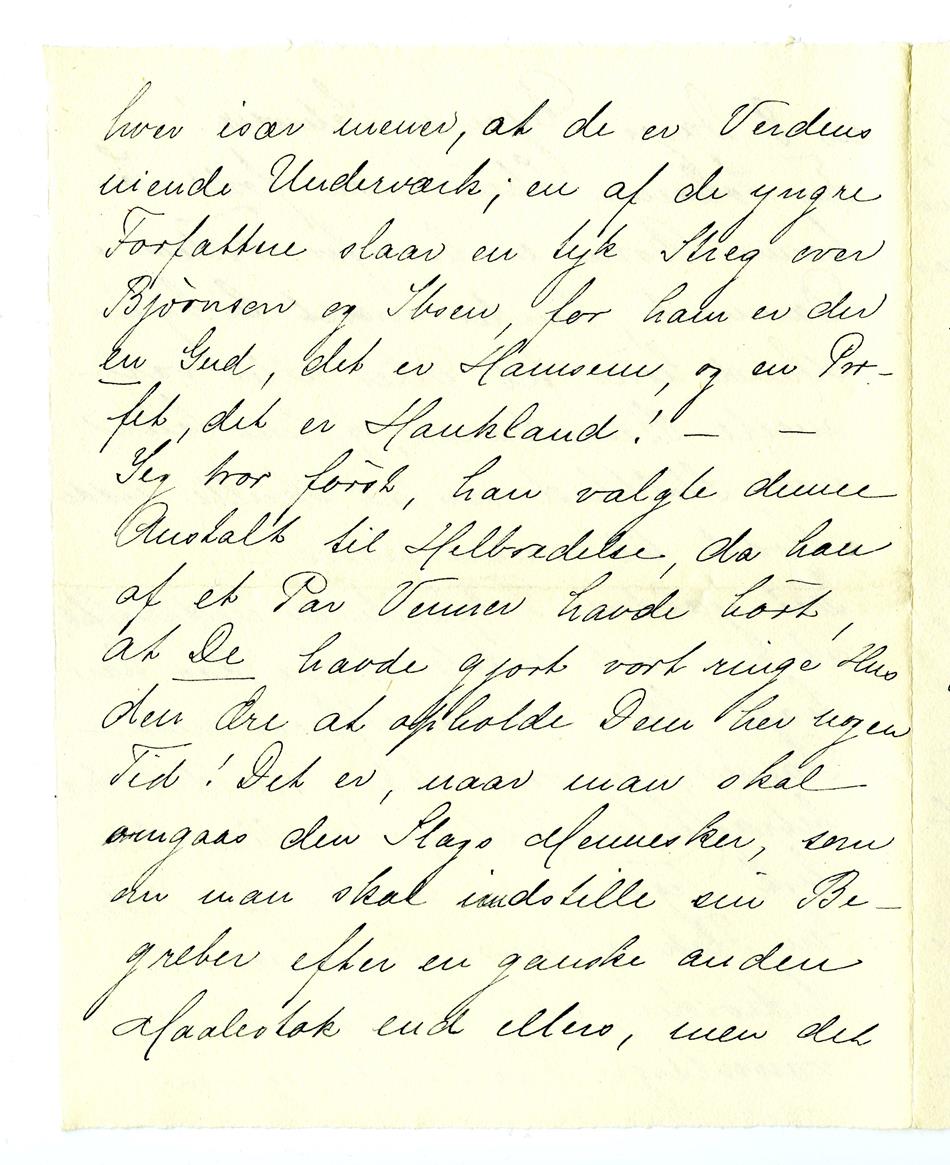 hver især mener, at de er Verdens
niende Underværk; en af de yngre
Forfattere slaar en tyk Streg over
Bjørnson og Ibsen, for ham er der
en Gud, det er Hamsun, og en Pro-
fet, det er Haukland! — —
Jeg tror først, han valgte denne
Anstalt til Helbredelse, da han
af et Par Venner havde hört,
at De havde gjort vort ringe Hus
den Ære at opholde Dem her nogen
Tid! Det er, naar man skal
omgaas den Slags Mennesker, som
om man skal indstille sin Be-
greber efter en ganske anden
Maalestok end ellers, men det